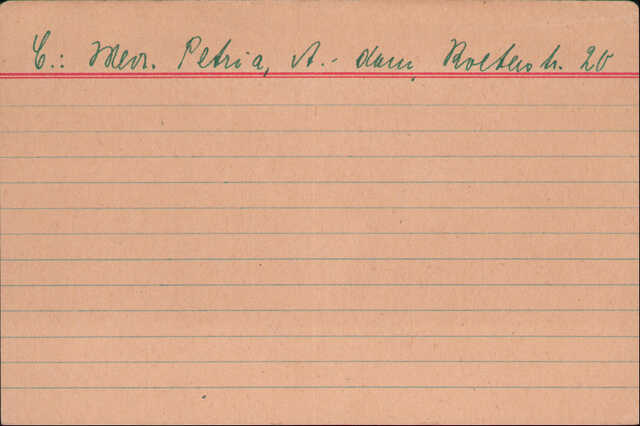 C.: Mevr. Petria, A.-dam, Roeterstr. 20